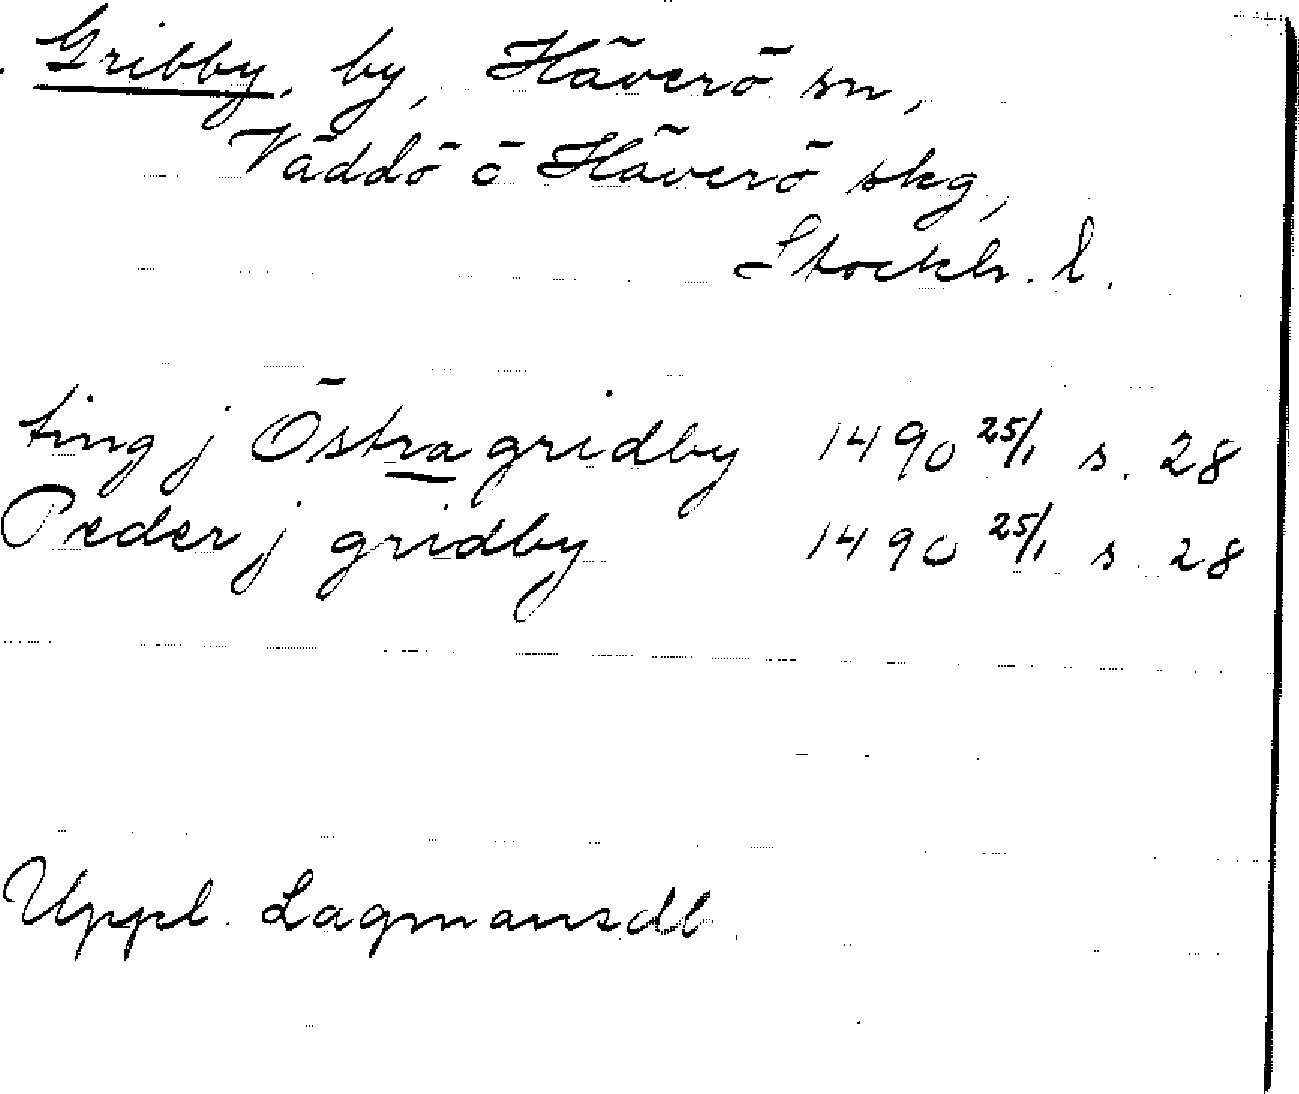 Gribby, by, Häverö sn,
Väddö o Häverö skg,
Stockh. l.
ting j Östragridby 1490 25/1 s. 28
Peder j gridby 1490 25/1 s 28
Uppl. Lagmansdb